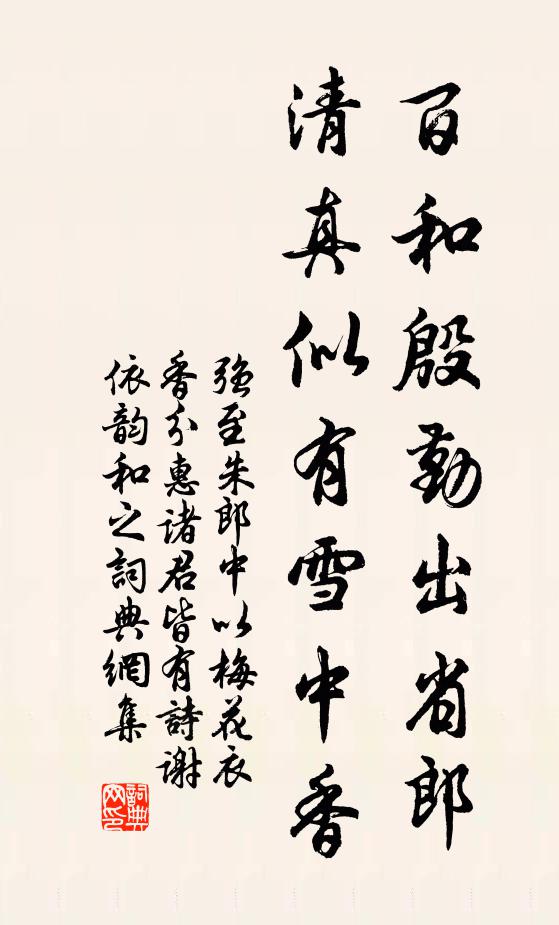 百和殷勤出省郎
清真似有雪中香
强至朱郎中以梅花衣
香分惠諸君皆有詩謝
依韵和之詞典網集
詞典
网印